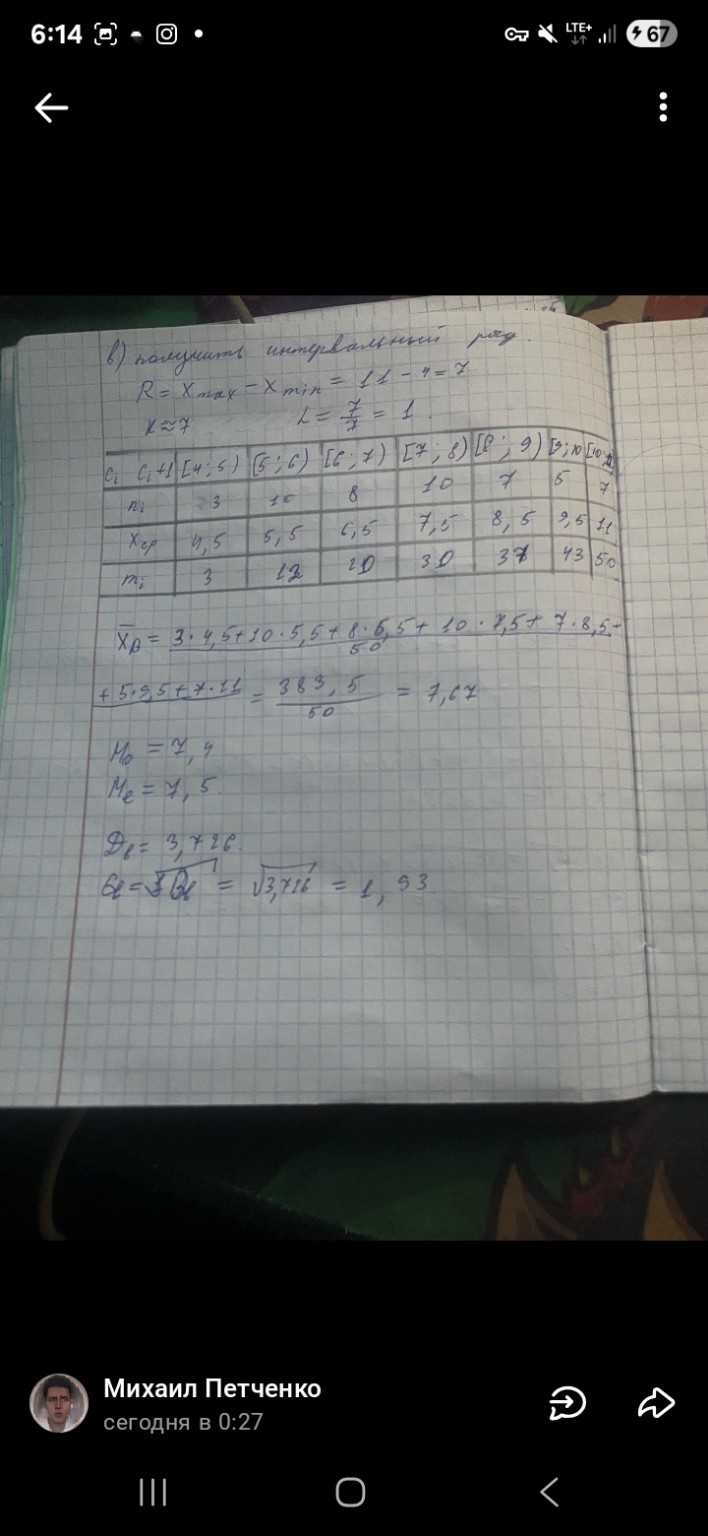 6:14
LTE+
67
в) получить интервальный ряд.
R = xmax - xmin = 11 - 4 = 7
k≈7 L = 7/7 = 1
Ci Ci+1 [4;5) [5;6) [6;7) [7;8) [8;9) [9;10
ni 3 10 8 10 7 5 7
xср 4,5 5,5 6,5 7,5 8,5 9,5 11
mi 3 20 30 43 50
X̄в = 3·4,5+10·5,5+8·6,5+10·7,5+7·8,5+
50
+5·9,5+7·11 = 383,5/50 = 7,67
Mo = 7,4
Me = 7,5.
Dв = 3,726.
= √3,726 = 1,93
Михаил Петченко
сегодня в 0:27